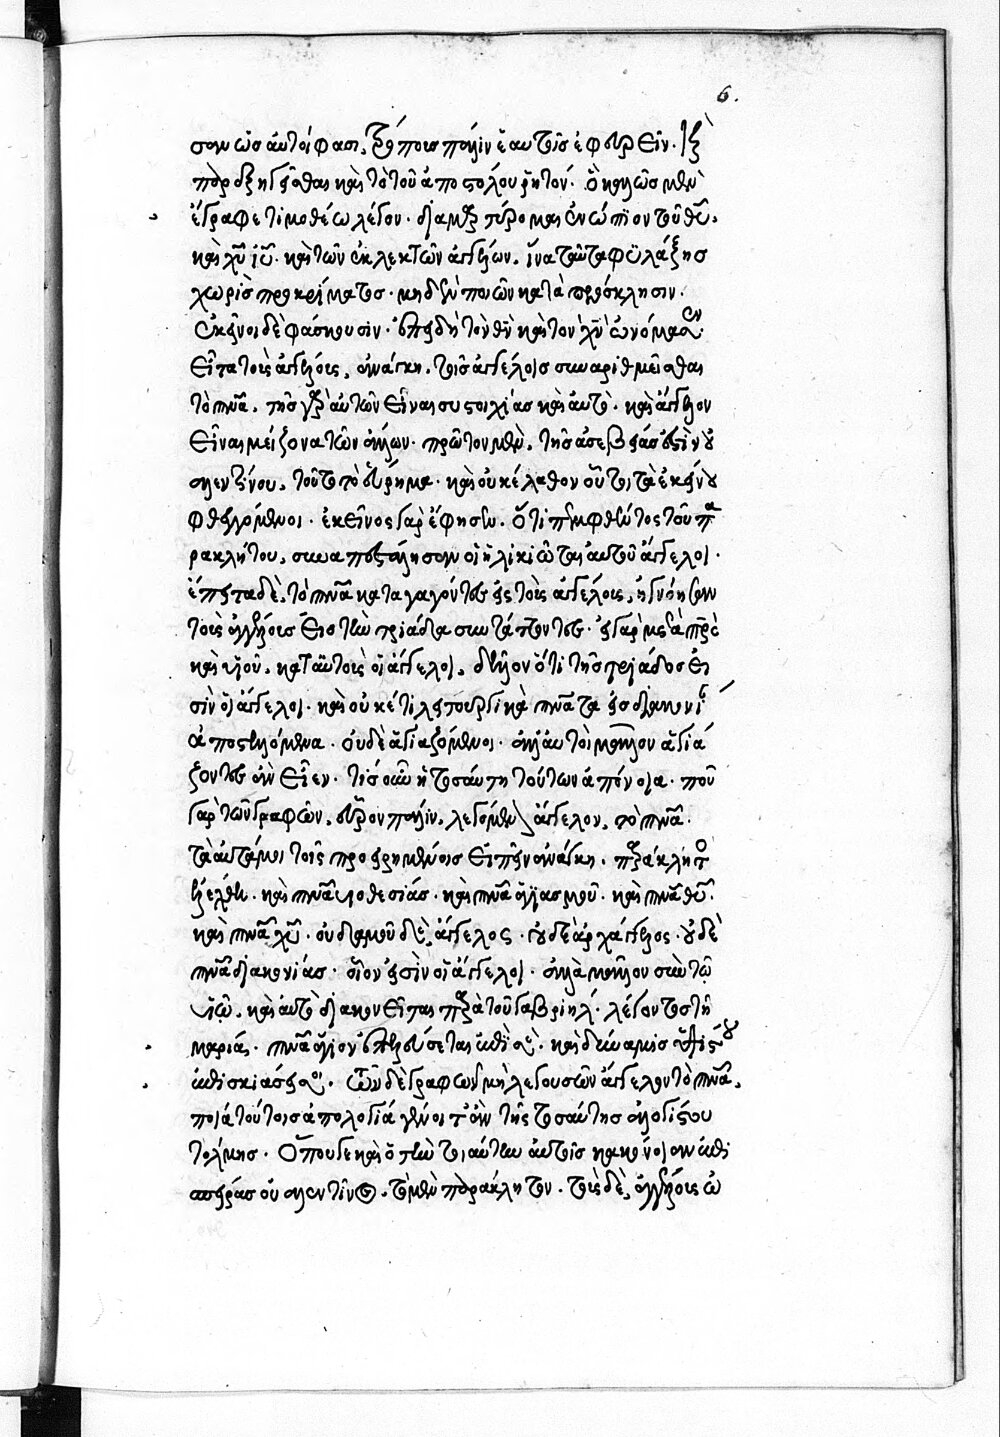 6.
σουν ὡς αὐτοί φασι, τρόποις ποίην ἑαυτοῖς ἐφευρεῖν. ἐξ
παρεξηγεῖσθαι καὶ τὸ τοῦ ἀποστόλου ῥητόν. ὃ καλῶς μὲν
ἔγραφε τιμοθέω λέγον. διαμαρτύρομαι ἐνώπιον τοῦ θῦ.
καὶ χῦ ἰῦ. καὶ τῶν ἐκλεκτῶν ἀγγέλων. ἵνα ταῦτα φυλάξης
χωρὶς προκρίματος. μηδὲν ποιῶν κατὰ πρόσκλησιν.
ἐκεῖνοι δὲ φάσκουσιν. ἐπειδὴ τὸν θν καὶ τὸν χν ὠνόμασεν.
εἶτα τοὺς ἀγγέλους, ἀνάγκη, τοῖς ἀγγέλοις συναριθμεῖσθαι
τὸ πνᾶ. τῆς γὰρ αὐτῶν εἶναι συστοιχίας καὶ αὐτὸ. καὶ ἄγγελον
εἶναι μείζονα τῶν ἄλλων. πρῶτον μὲν, τῆς ἀσεβείας ἐστὶν οὐ
αλεντίνου, τοῦτο τὸ εὕρημα. καὶ οὐκ έλαθον οὗτοι τὰ ἐκείνου
φθεγγόμενοι. ἐκεῖνος γὰρ ἔφησεν. ὅτι πεμφθέντος τοῦ πα
ρακλήτου, συναπεστάλησαν οἱ ἡλικιῶται αὐτοῦ ἄγγελοι.
ἔπειτα δὲ, τὸ πνᾶ καταγαγόντες εἰς τοὺς ἀγγέλους, ἠγνόησαν
τοὺς ἀγγέλους εἰς τὴν τριάδα συντάττοντες. εἰ γὰρ μετὰ πρς
καὶ υἱοῦ. κατ' αὐτοὺς οἱ ἄγγελοι, δῆλον ὅτι τῆς τριάδος εἰ
σὶν οἱ ἄγγελοι. καὶ οὐκέτι λειτουργικὰ πνᾶτα εἰς διακονί
ἀποστελλόμενα. οὐδὲ ἁγιαζόμενοι. ἀλλ' αὐτοὶ μᾶλλον ἁγιά
ζοντες ἂν εἶεν. τίς οὖν ἡ τοσαύτη τούτων ἀπόνοια. ποῦ
γὰρ τῶν γραφῶν, εὗρον ποίην, λεγόμενον ἄγγελον, τὸ πνᾶ.
τὰ αὐτά μοι τοῖς προειρημένοις εἰπεῖν ἀνάγκη. παράκλητο
ἐλέχθη. καὶ πνᾶ υἱοθεσίας. καὶ πνᾶ ἁγιασμοῦ. καὶ πνᾶ θῦ.
καὶ πνᾶ χῦ. οὐδαμοῦ δὲ ἄγγελος. οὐδὲ ἀρχάγγελος. οὐδὲ
πνᾶ διακονίας. οἷον εἰσὶν οἱ ἄγγελοι. ἀλλὰ μᾶλλον σὺν τῷ
υἱῷ, καὶ αὐτὸ διακονεῖται παρὰ τοῦ γαβριὴλ. λέγοντος τῆ
μαρία. πνᾶ ἅγιον ἐπελεύσεται ἐπὶ σὲ. καὶ δύναμις ὑψίστου
ἐπισκιάσει σοι. τῶν δὲ γραφῶν μὴ λεγουσῶν ἄγγελον τὸ πνᾶ,
ποία τούτοις ἀπολογία γένοιτο ἂν τῆς τοσαύτης ἀλογίστου
τόλμης. ὅπου γε καὶ ὁ τὴν τοιαύτην αὐτοῖς κακόνοιαν ἐπι
σπείρας οὐαλεντῖνος, τὸ μὲν παράκλητον, τοὺς δὲ, ἀγγέλους ὠ